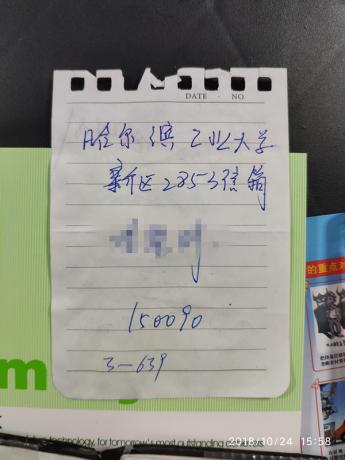 DATE · NO.
哈尔滨工业大学
新区2853信箱
150090
3-639
的重点对
technology, for tomorrow's most outstanding
2018/10/24 15:58